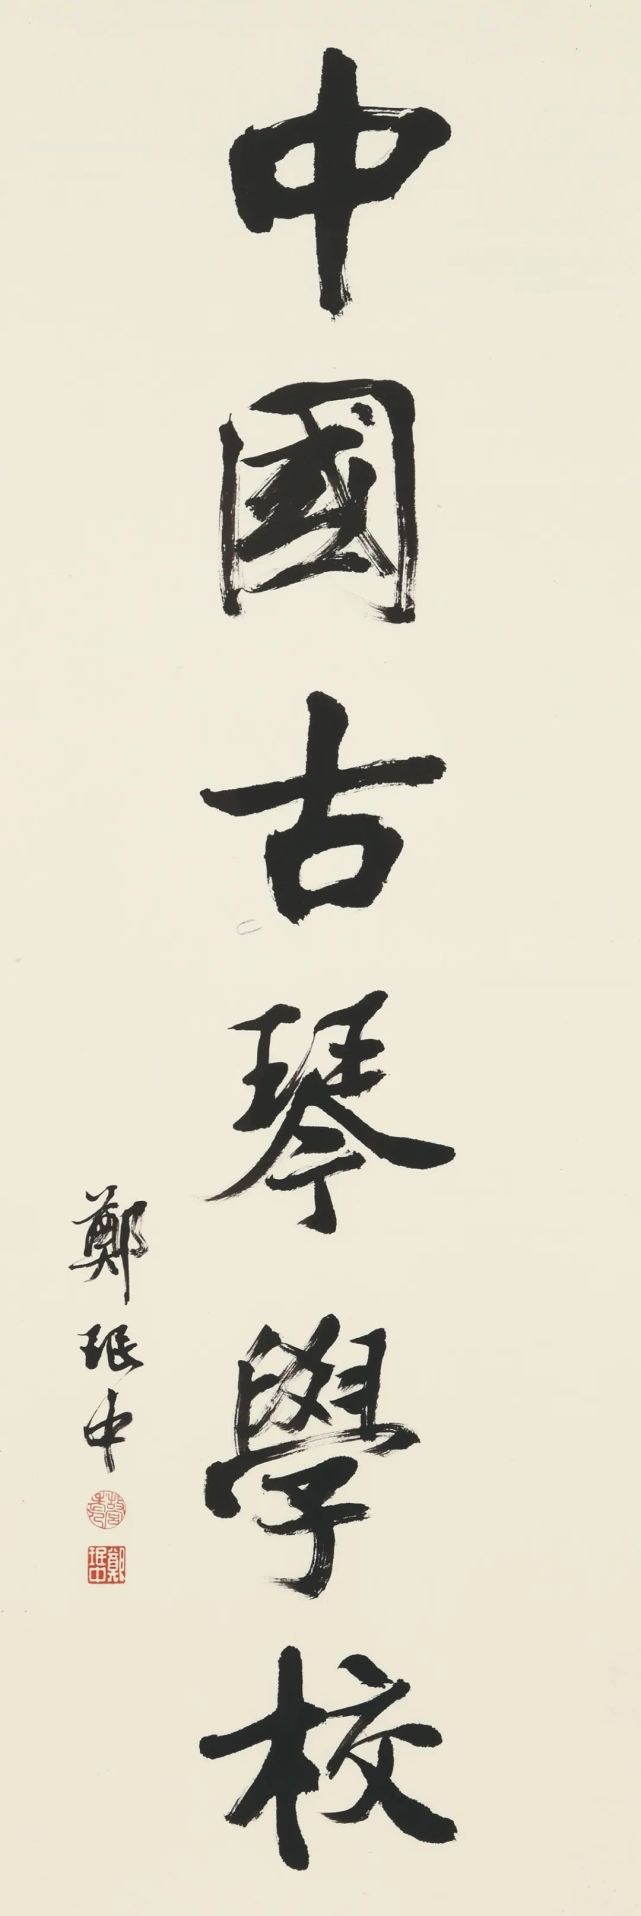 中國古琴學校
鄭珉中
鄭珉中